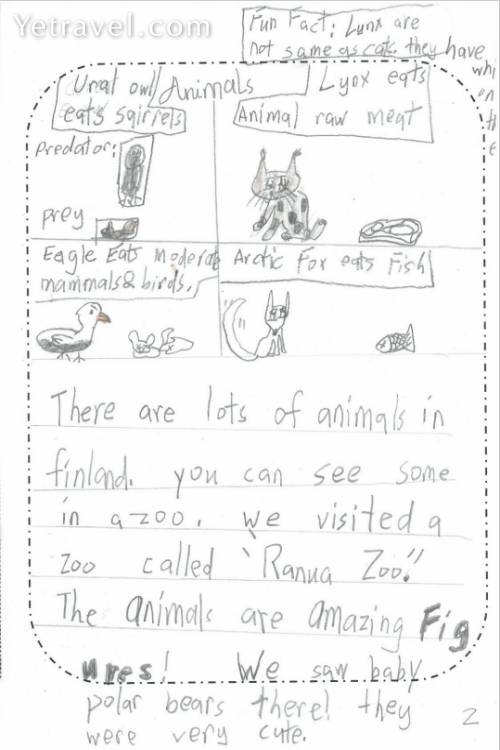 Yetravel.com
Fun Fact: Lynx are
not same as cats. they have
whi
on
th
e
Urat owl
eats sqirrels
Animals
Lynx eats
Animal raw meat
Predator:
prey
Eagle Eats Moderate
mammals & birds.
Arctic Fox eats Fish
There are lots of animals in
finland. you can see some
in a zoo. We visited a
zoo called "Ranua Zoo!"
The animals are amazing Fig
ures! We saw baby
polar bears there! they
were very cute.
2